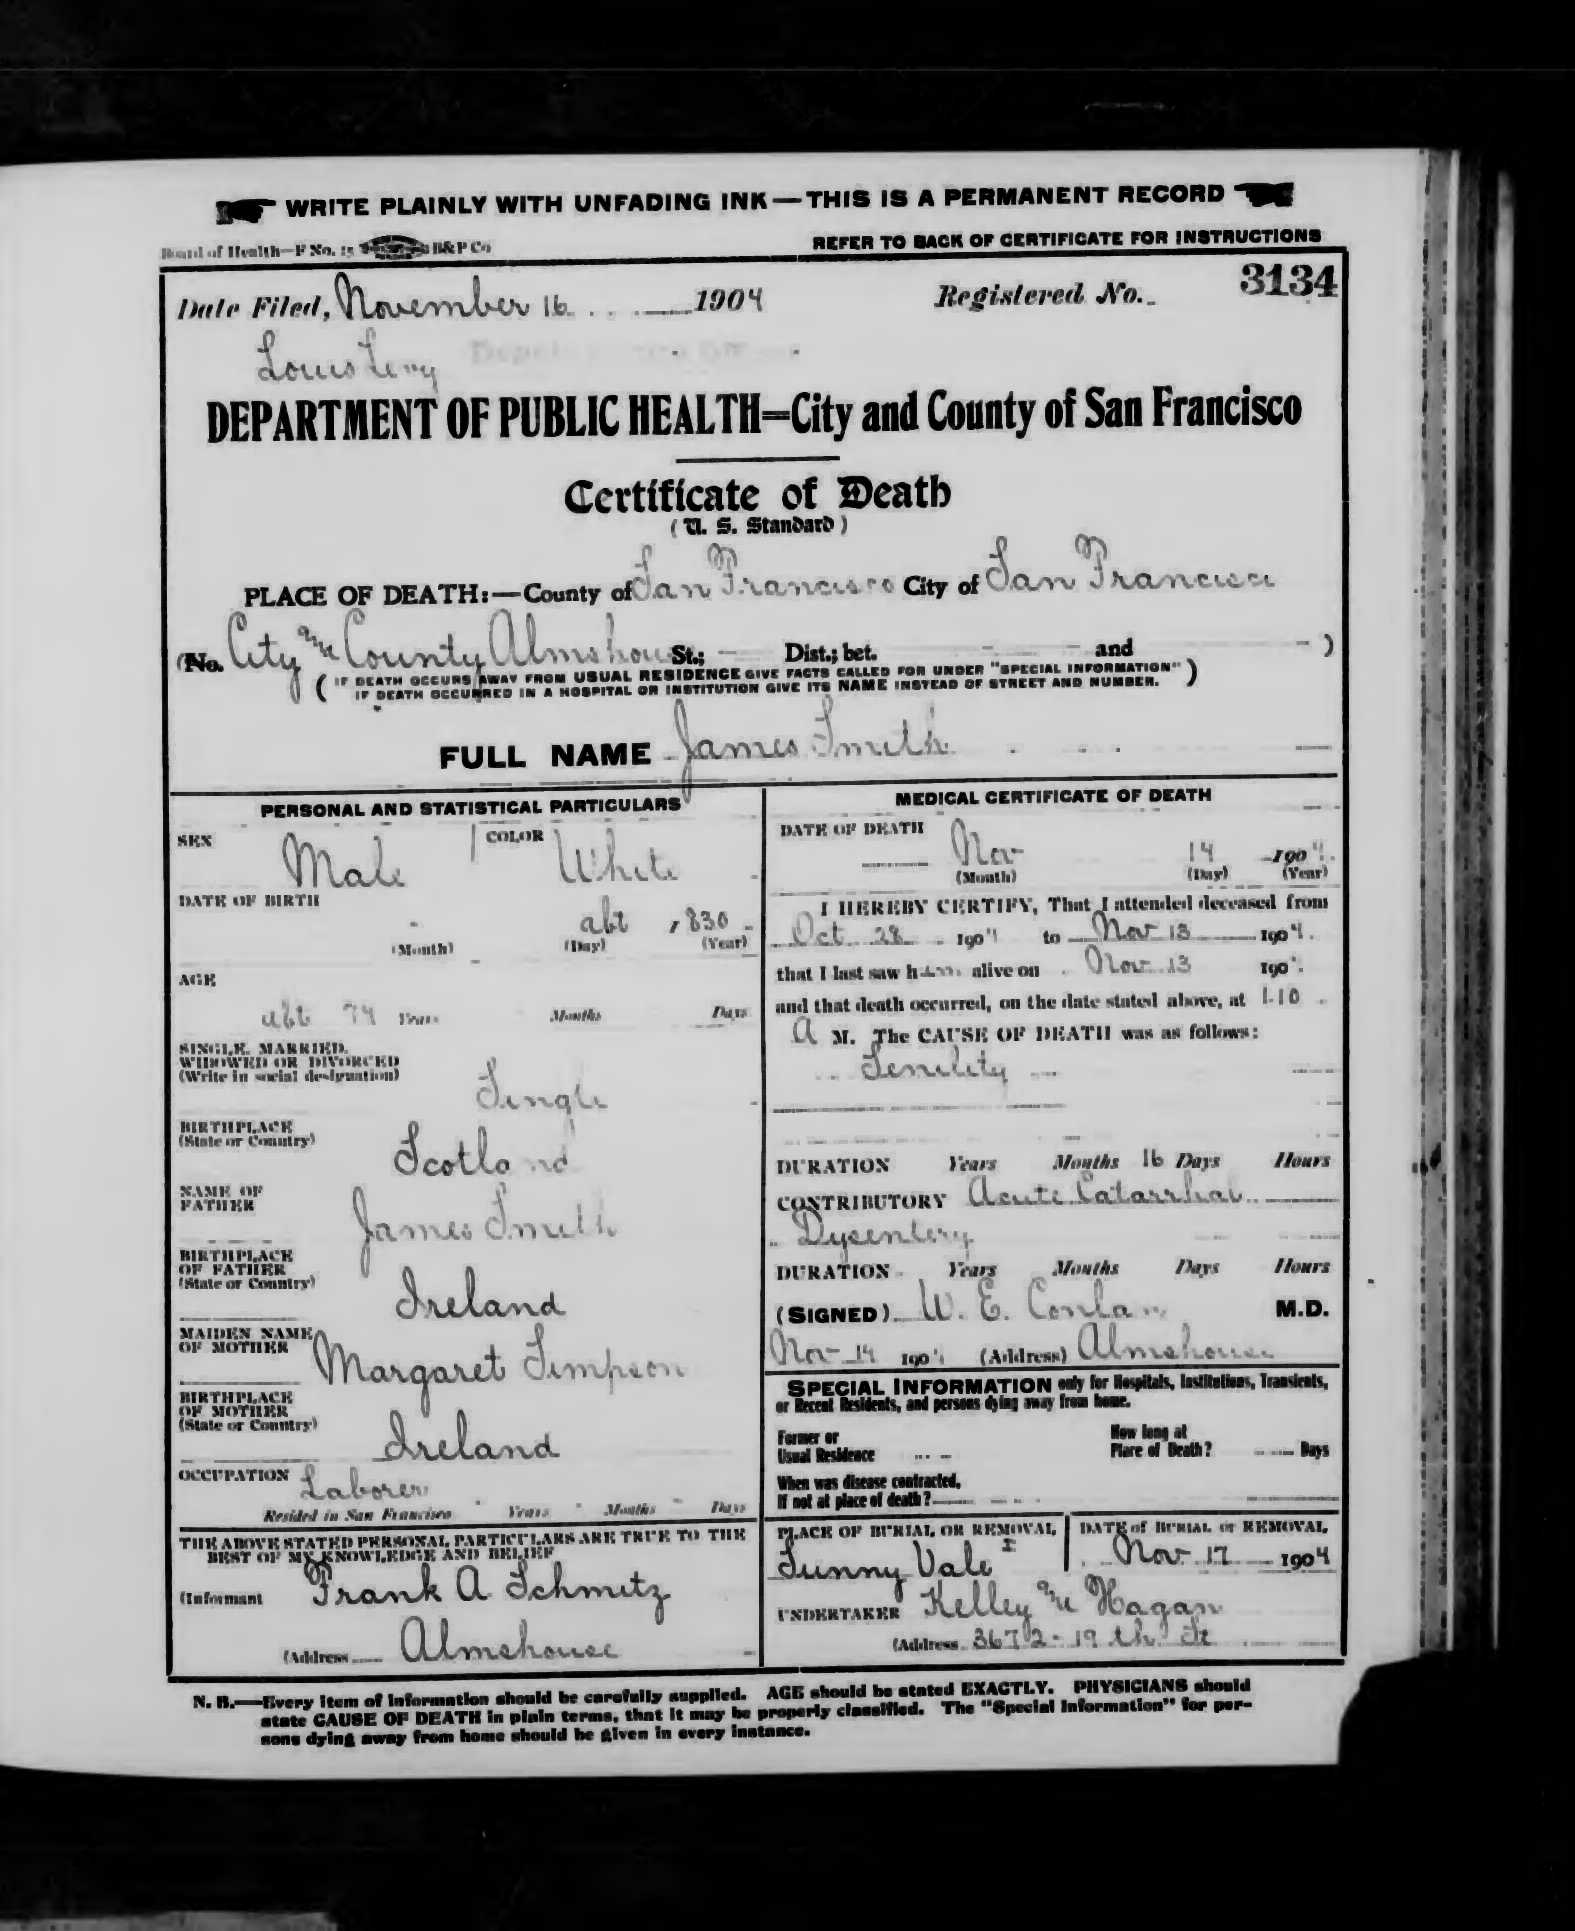 WRITE PLAINLY WITH UNFADING INK—THIS IS A PERMANENT RECORD
Board of Health—F No. 15 B&P Co
REFER TO BACK OF CERTIFICATE FOR INSTRUCTIONS
Date Filed, November 16 1904 Registered No. 3134
Louis Levy
DEPARTMENT OF PUBLIC HEALTH=City and County of San Francisco
Certificate of Death
(U. S. Standard)
PLACE OF DEATH:—County of San Francisco City of San Francisco
(No. City and County Almshouse St.; Dist.; bet. and )
(IF DEATH OCCURS AWAY FROM USUAL RESIDENCE GIVE FACTS CALLED FOR UNDER "SPECIAL INFORMATION"
IF DEATH OCCURRED IN A HOSPITAL OR INSTITUTION GIVE ITS NAME INSTEAD OF STREET AND NUMBER.)
FULL NAME James Smith
PERSONAL AND STATISTICAL PARTICULARS
SEX Male COLOR White
DATE OF BIRTH
abt 1830
(Month) (Day) (Year)
AGE
abt 74 Years Months Days
SINGLE, MARRIED,
WIDOWED OR DIVORCED
(Write in social designation)
Single
BIRTHPLACE
(State or Country)
Scotland
NAME OF
FATHER
James Smith
BIRTHPLACE
OF FATHER
(State or Country)
Ireland
MAIDEN NAME
OF MOTHER
Margaret Simpson
BIRTHPLACE
OF MOTHER
(State or Country)
Ireland
OCCUPATION Laborer
Resided in San Francisco Years Months Days
THE ABOVE STATED PERSONAL PARTICULARS ARE TRUE TO THE
BEST OF MY KNOWLEDGE AND BELIEF
(Informant Frank A Schmitz
(Address Almshouse
MEDICAL CERTIFICATE OF DEATH
DATE OF DEATH
Nov 14 1904
(Month) (Day) (Year)
I HEREBY CERTIFY, That I attended deceased from
Oct 28 1904 to Nov 13 1904
that I last saw him alive on Nov 13 190
and that death occurred, on the date stated above, at 1-10
A M. The CAUSE OF DEATH was as follows:
Senility
DURATION Years Months 16 Days Hours
CONTRIBUTORY Acute Catarrhal
Dysentery
DURATION Years Months Days Hours
(SIGNED) W. E. Conlan M.D.
Nov 14 1904 (Address) Almshouse
SPECIAL INFORMATION only for Hospitals, Institutions, Transients,
or Recent Residents, and persons dying away from home.
Former or
Usual Residence
How long at
Place of Death? Days
When was disease contracted,
If not at place of death?
PLACE OF BURIAL OR REMOVAL
Sunny Vale I
DATE of BURIAL or REMOVAL
Nov 17 1904
UNDERTAKER Kelley and Hagan
(Address 3672-19th St
N. B.—Every item of information should be carefully supplied. AGE should be stated EXACTLY. PHYSICIANS should
state CAUSE OF DEATH in plain terms, that it may be properly classified. The "Special Information" for per-
sons dying away from home should be given in every instance.